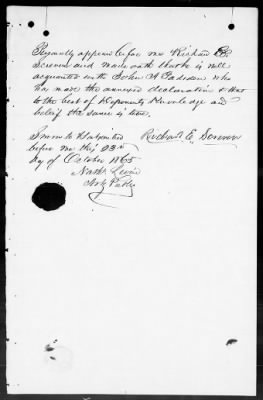 Personally appeared before me Richard E.
Screven and made oath that he is well
acquainted with John A. who
has made the annexed declaration & that
to the best of Deponents Knowledge and
belief the same is true.
Sworn to & Subscribed
before me this 23rd
day of October 1865
Richard E. Screven
Nath Levin
Not Public